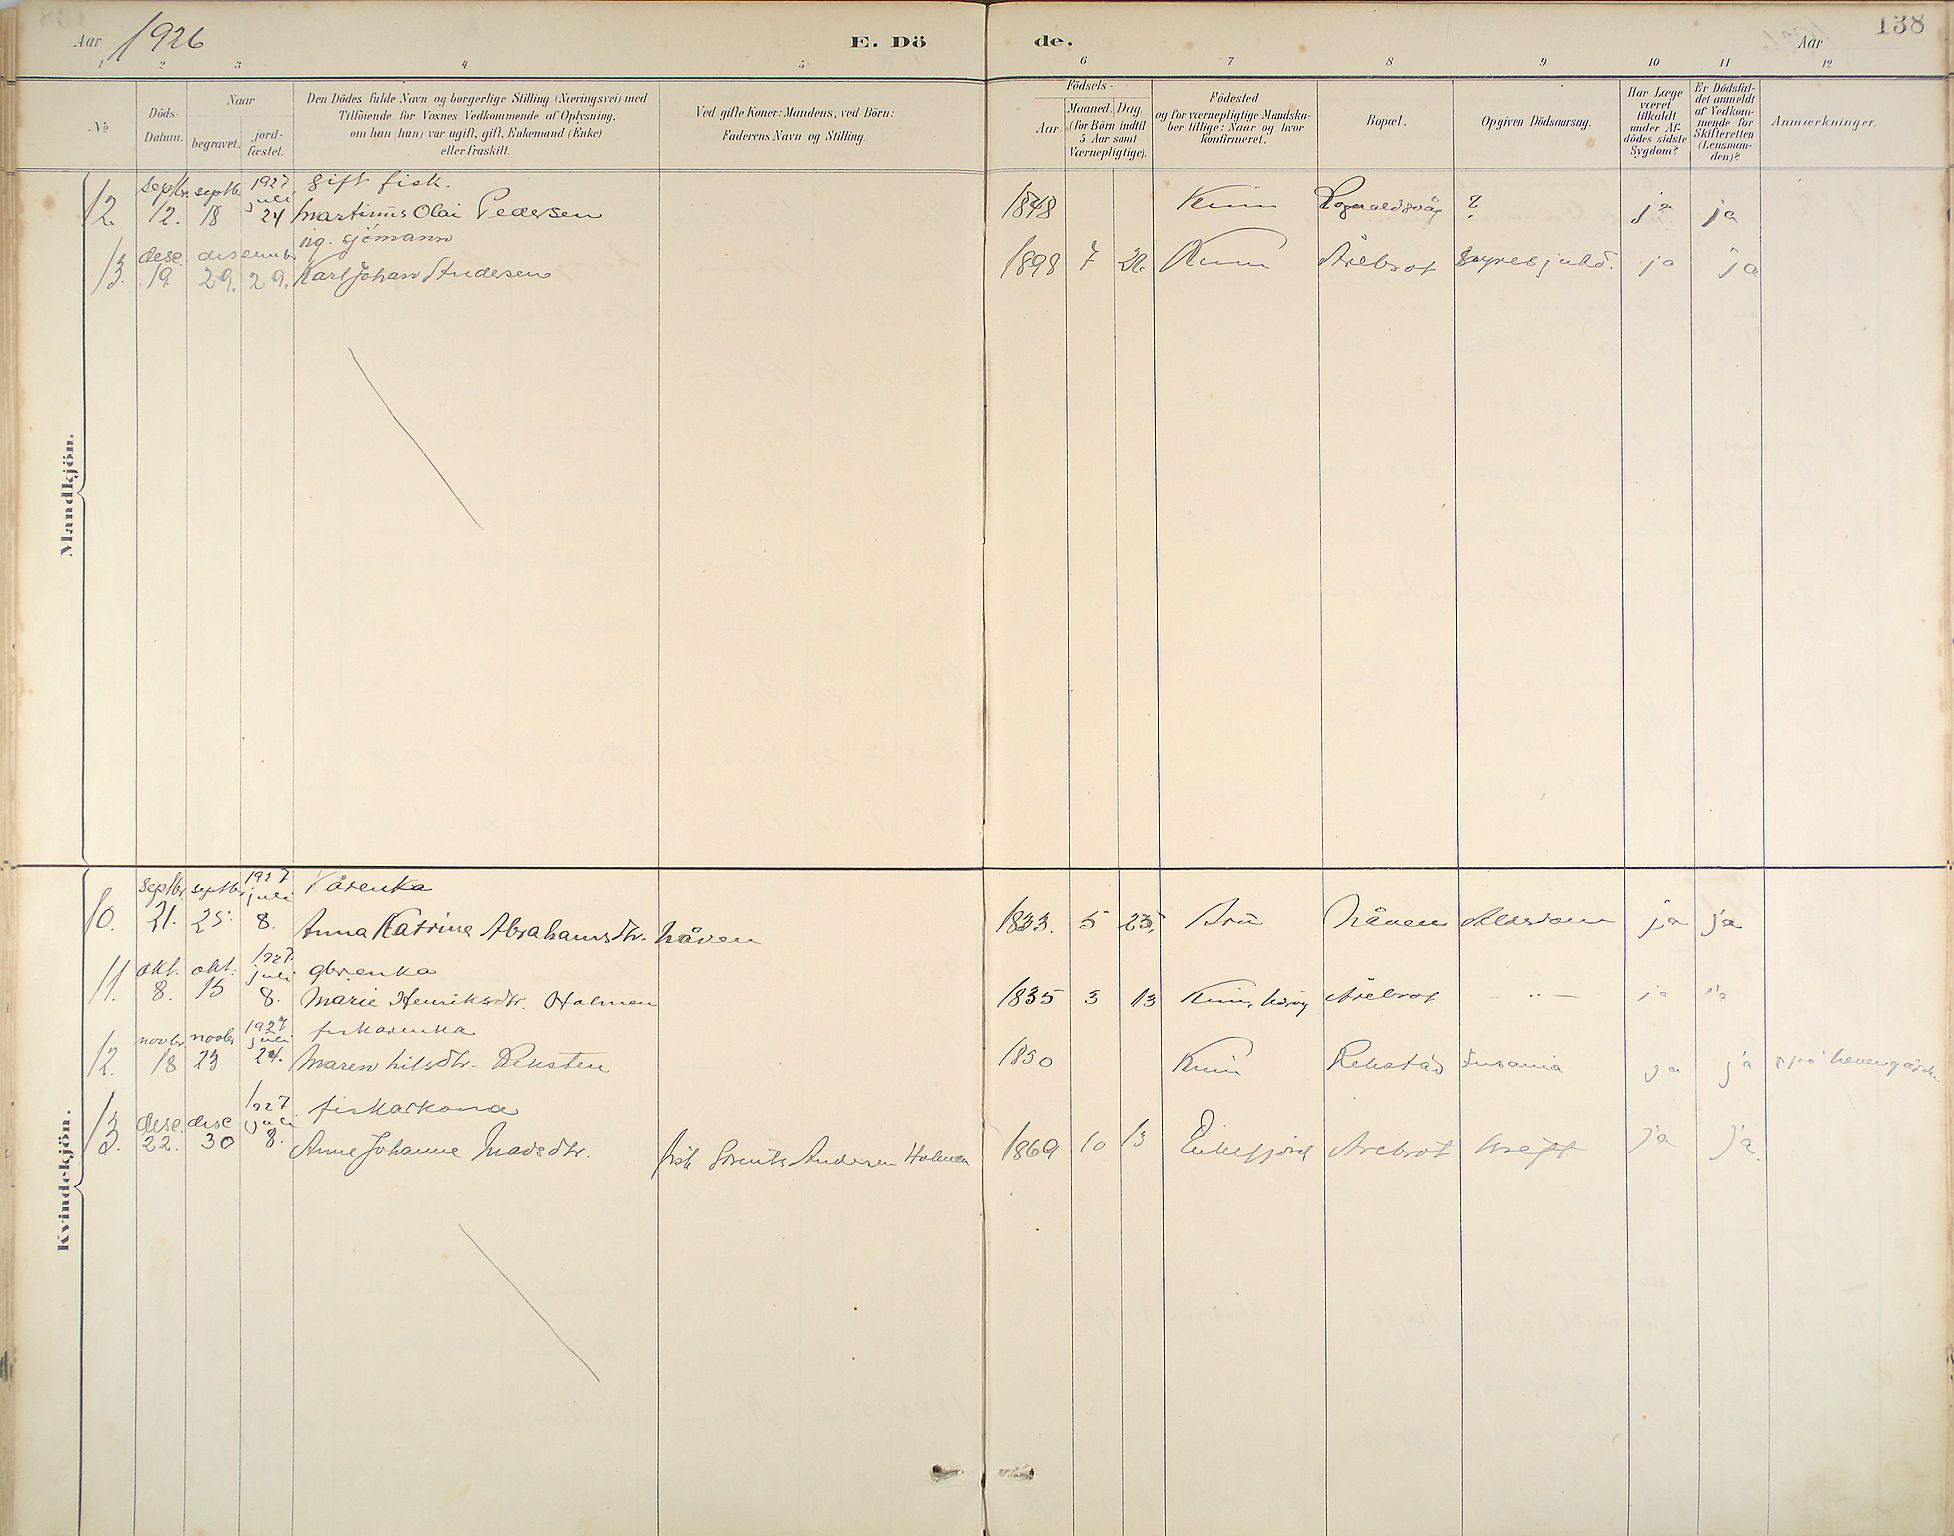 Aar 1926
E. Dö
de.
Aar
138
1 2 3 4 5 6 7 8 9 10 11 12
No
Döds-
Datum.
Naar
begravet.
jord-
fæstet.
Den Dödes fulde Navn og borgerlige Stilling (Næringsvei) med
Tilföiende for Voxnes Vedkommende af Oplysning,
om han (hun) var ugift, gift, Enkemand (Enke)
eller fraskilt.
Ved gifte Koner: Mandens, ved Börn:
Faderens Navn og Stilling.
Födsels-
Aar
Maaned. Dag.
(for Börn indtil
5 Aar samt
Værnepligtige).
Födested
og for værnepligtige Mandska-
ber tillige: Naar og hvor
konfirmeret.
Bopæl.
Opgiven Dödsaarsag.
Har Læge
været
tilkaldt
under Af-
dödes sidste
Sygdom?
Er Dödsfal-
det anmeldt
af Vedkom-
mende for
Skifteretten
(Lensman-
den)?
Anmærkninger.
Mandkjön.
septbr. septbr 1927 juli gift fisk.
12. 12. 18 24 Martinus Olai Pedersen 1848 Kinn ? ja ja
dese. desember ug. sjömann
13. 19. 29. 29. Karl Johan Andersen 1898 7 Kinn Årebrot ja ja
Kvindekjön.
septbr. septbr 1927 juli
10. 21. 25. 8. Anna Katrina Abrahamsdtr. Nåven 1833. 5 23. Bru Nåven Alderdom ja ja
okt. okt. 1927 juli
11. 8. 15 8. Marie Henriksdtr. Holmen 1835 3 13 Kinn, Årebrot - " - ja ja
novbr novbr 1927 juli fiskarenka
12. 18 23 24. Maren Nilsdtr. Reksten 1850 Kinn Rekstad ja ja
dese. dese 1927 juli fiskarkona
13. 22. 30 8. Anne Johanne Madsdtr. fisk. Andersen Holmen 1869 10 13 Eikefjord Årebrot kreft ja ja.